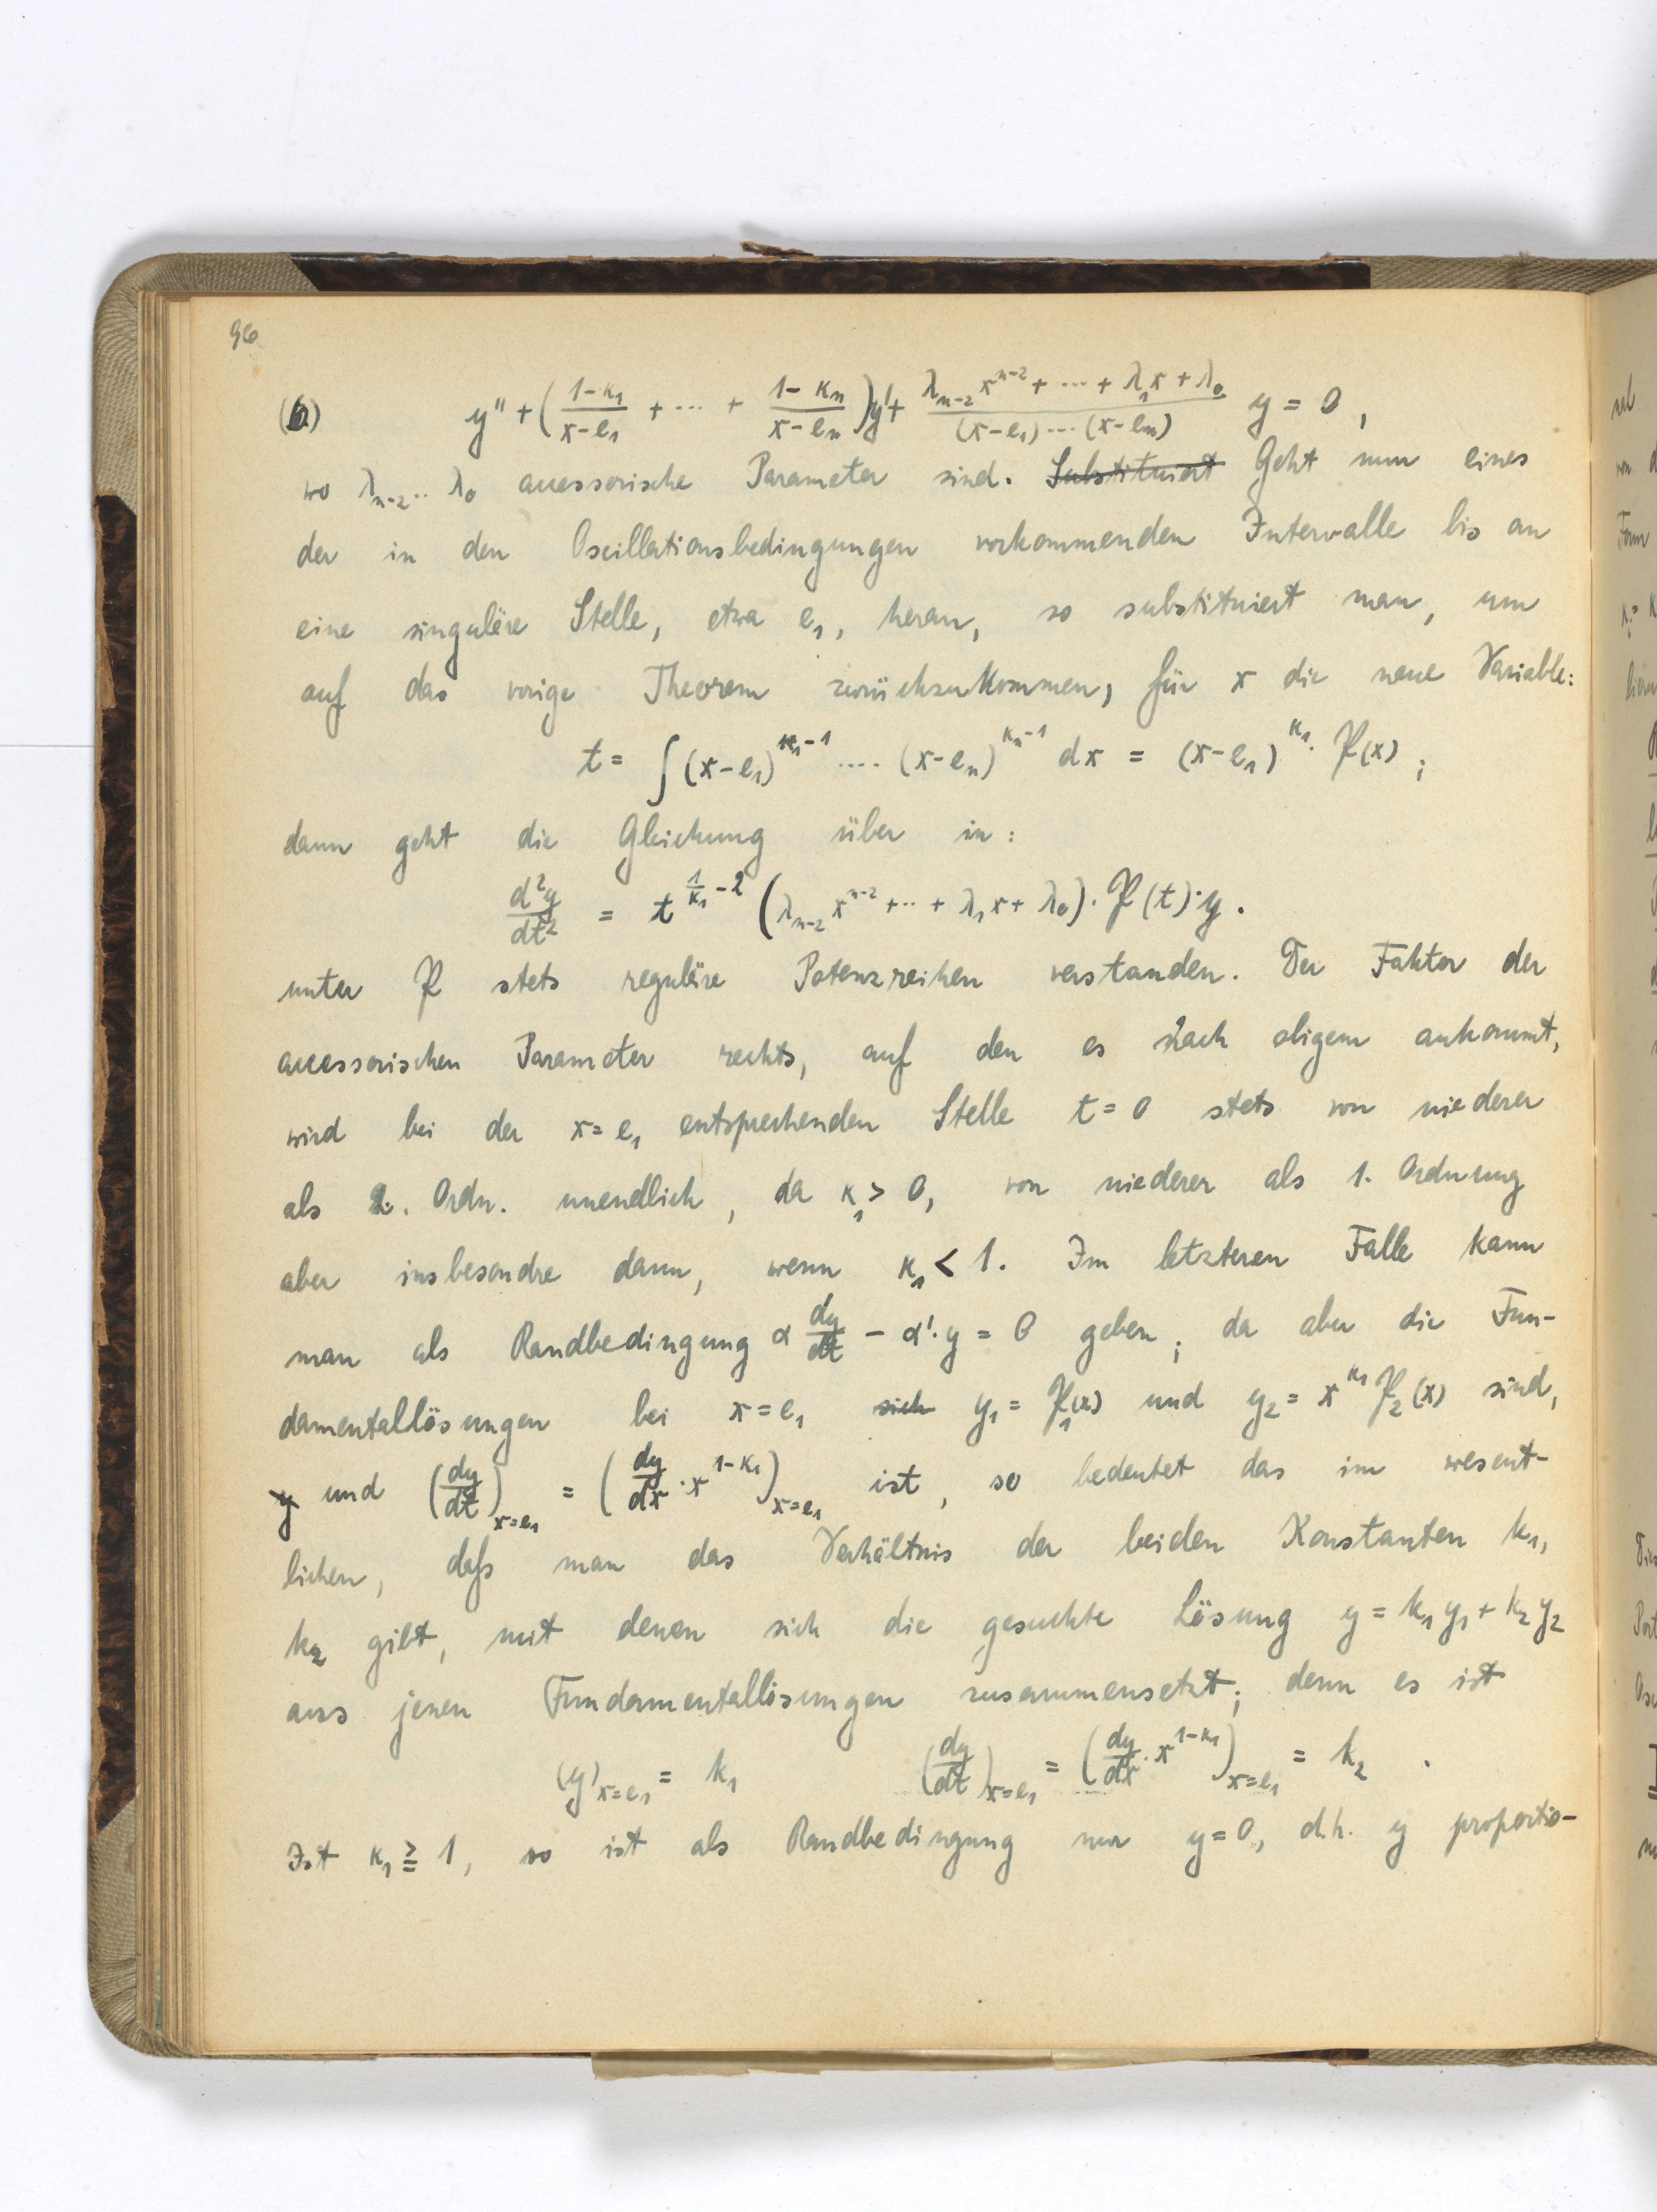 96
(6) y'' + ( (1-κ₁)/(x-e₁) + ⋯ + (1-κₙ)/(x-eₙ) ) y' + (λₙ₋₂ xⁿ⁻² + ⋯ + λ₁x + λ₀)/((x-e₁)⋯(x-eₙ)) y = 0,
wo λₙ₋₂ ‥ λ₀ accessorische Parameter sind. Substituiert Geht nun eines
der in den Oscillationsbedingungen vorkommenden Intervalle bis an
eine singuläre Stelle, etwa e₁, heran, so substituiert man, um
auf das vorige Theorem zurückzukommen, für x die neue Variable:
t = ∫ (x-e₁)^{κ₁-1} ⋯ (x-eₙ)^{κₙ-1} dx = (x-e₁)^{κ₁}. P(x);
dann geht die Gleichung über in:
d²y/dt² = t^{1/κ₁ - 2} (λₙ₋₂ xⁿ⁻² + ⋯ + λ₁x + λ₀). P(t). y.
unter P stets reguläre Potenzreihen verstanden. Der Faktor der
accessorischen Parameter rechts, auf den es nach obigem ankommt,
wird bei der x = e₁ entsprechenden Stelle t = 0 stets von niederer
als 2. Ordn. unendlich, da κ₁ > 0, von niederer als 1. Ordnung
aber insbesondre dann, wenn κ₁ < 1. Im letzteren Falle kann
man als Randbedingung α dy/dt - α'. y = 0 geben; da aber die Fun-
damentallösungen bei x = e₁ sich y₁ = P₁(x) und y₂ = x^{κ₁} P₂(x) sind,
y und (dy/dt)_{x=e₁} = (dy/dx . x^{1-κ₁})_{x=e₁} ist, so bedeutet das im wesent-
lichen, daſs man das Verhältnis der beiden Konstanten k₁,
k₂ gibt, mit denen sich die gesuchte Lösung y = k₁y₁ + k₂y₂
aus jenen Fundamentallösungen zusammensetzt; denn es ist
(y)_{x=e₁} = k₁ (dy/dt)_{x=e₁} = (dy/dx . x^{1-κ₁})_{x=e₁} = k₂ .
Ist κ₁ ≧ 1, so ist als Randbedingung nur y = 0, d.h. y proportio-